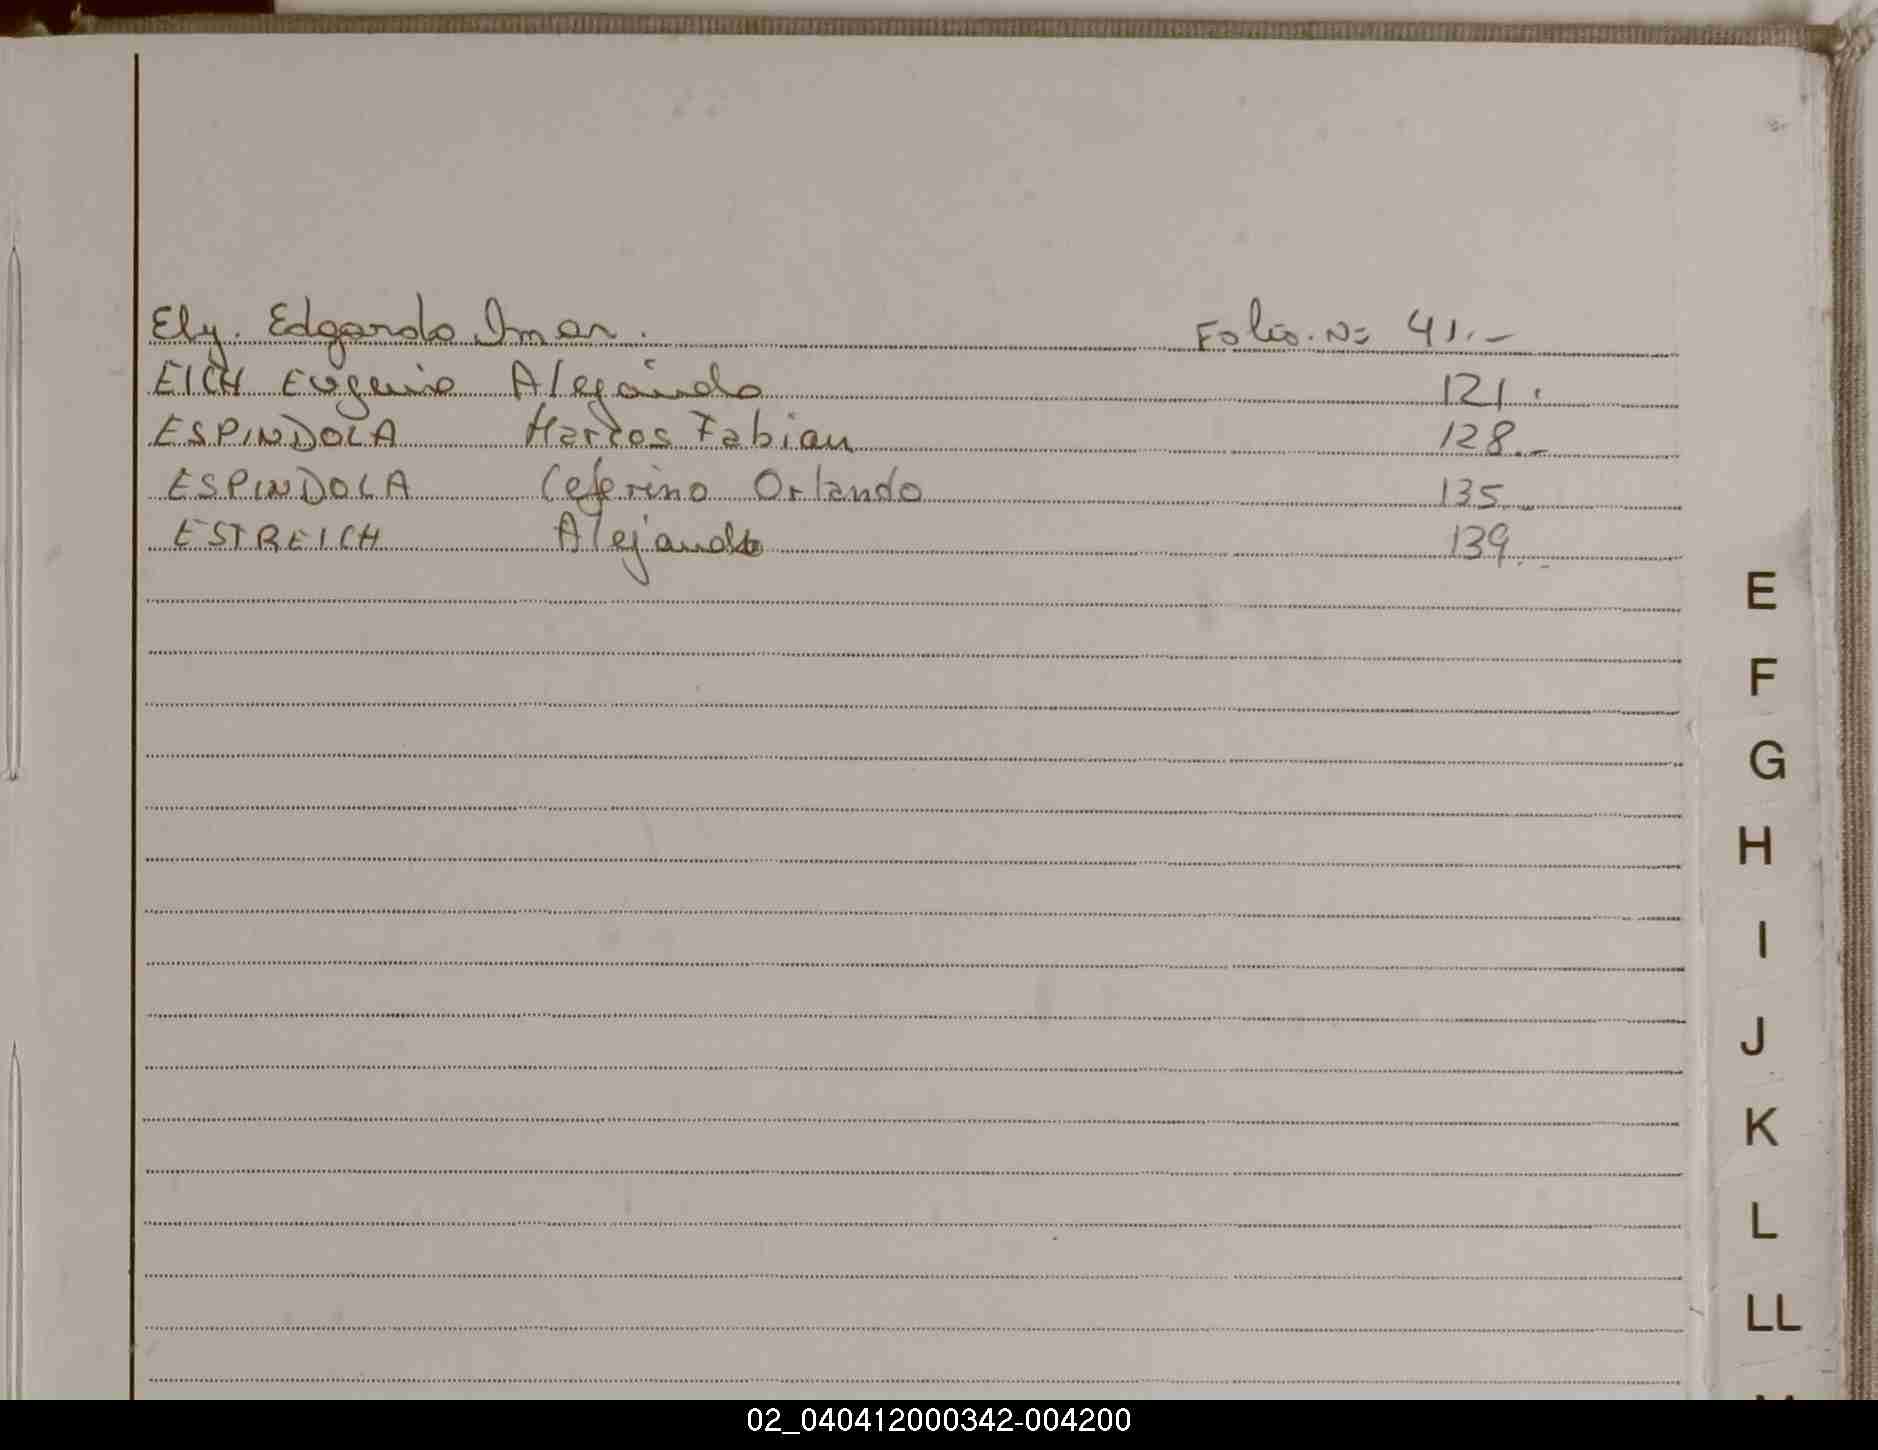 Ely. Edgardo Imar. Folio. N= 41.-
EICH Eugenio Alejandro 121.
ESPINDOLA Marcos Fabian 128.-
ESPINDOLA Ceferino Orlando 135.-
ESTREICH Alejandro 139.-
E
F
G
H
I
J
K
L
LL
02_040412000342-004200